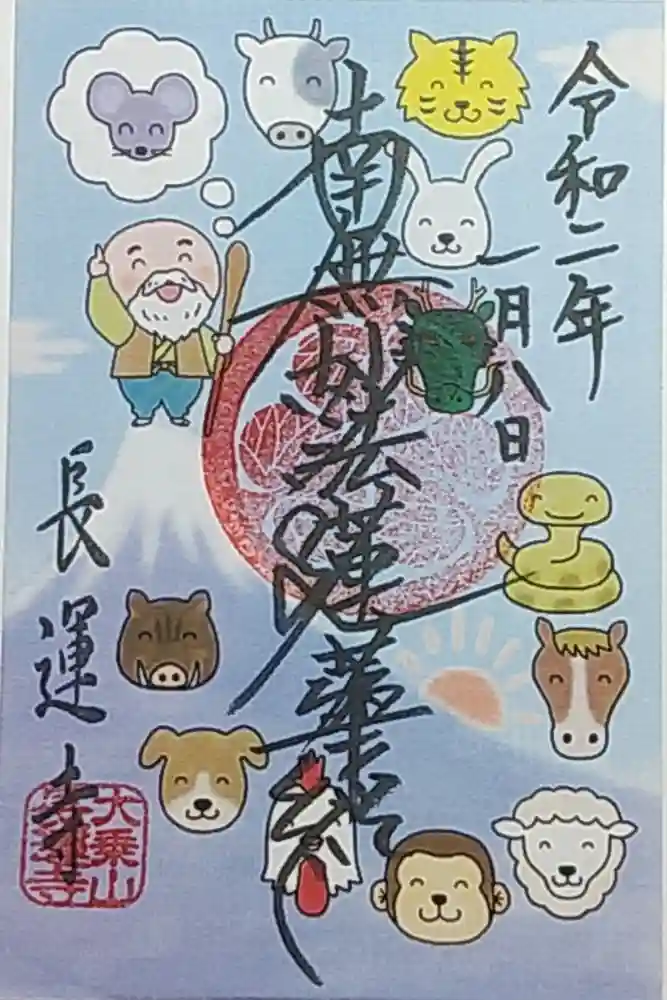 令和二年
一月八日
南無妙法蓮華経
長運寺
大乗山
長運寺